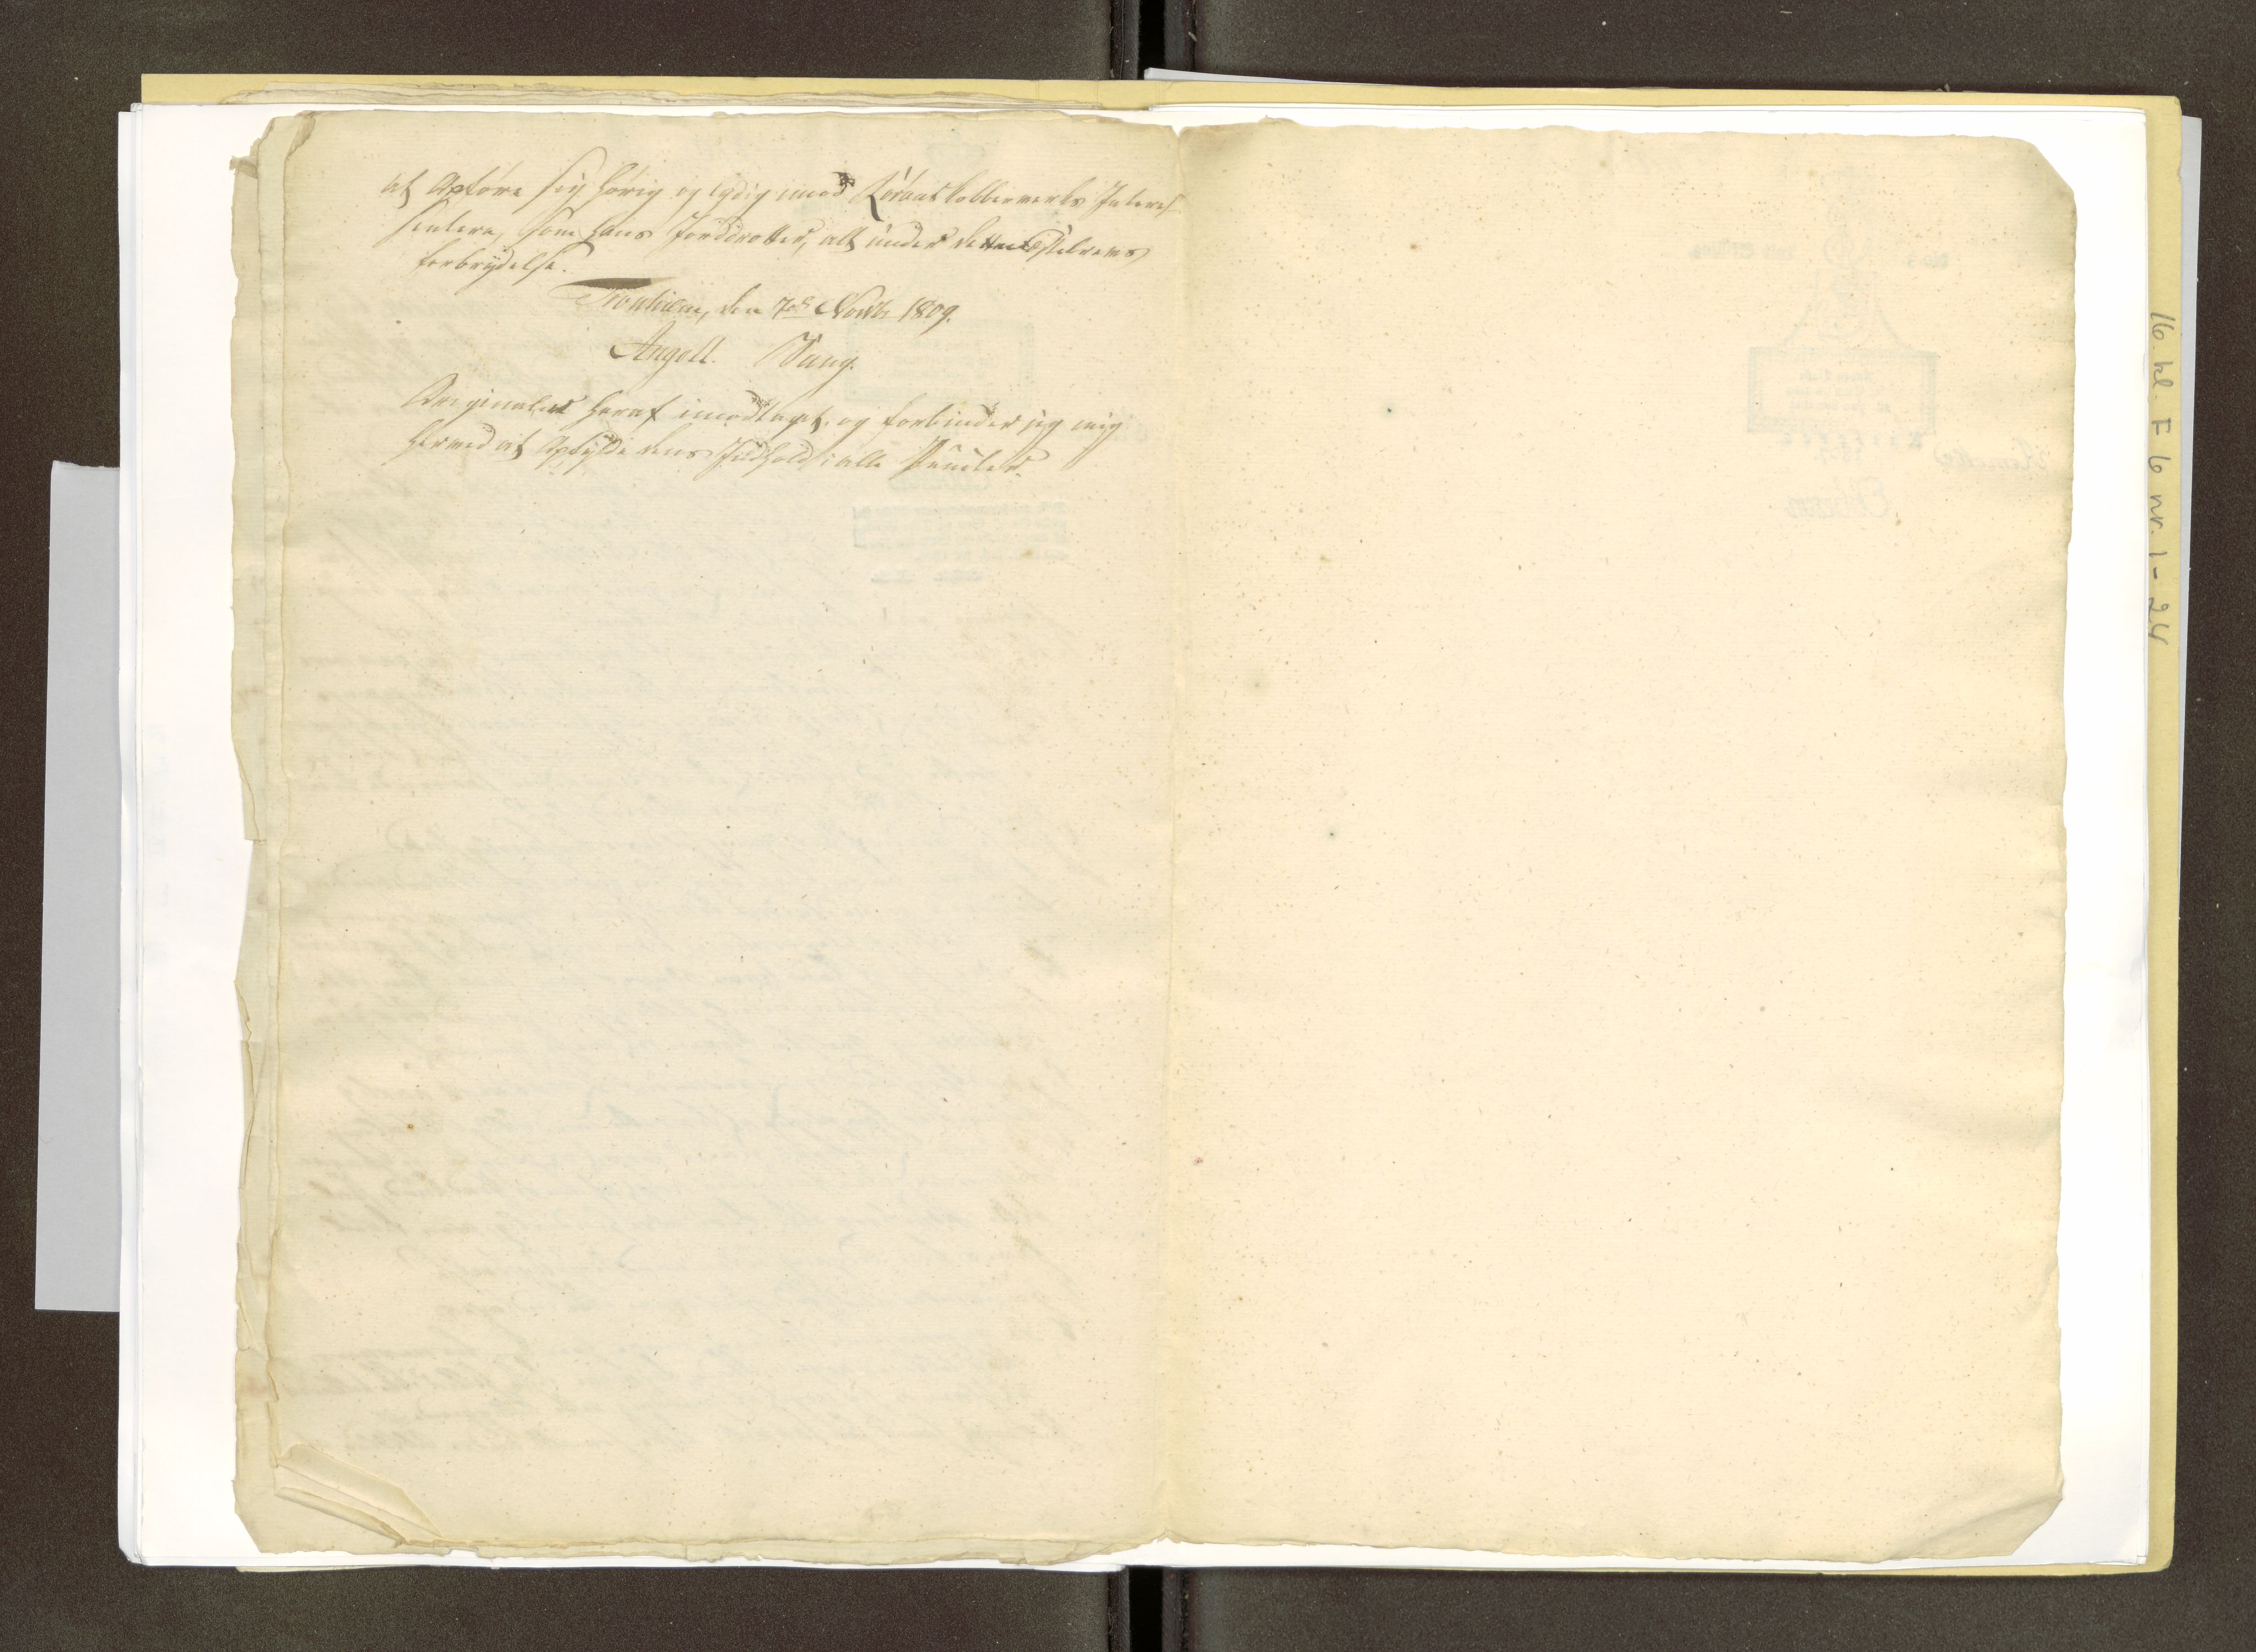 at opføre sig hørig og lydig imod Røraas Kobberverks Interes-
sentere, som hans Jorddrotter, alt under dette
forbrydelse.
Tronhiem, den 7de Novbr 1809.
Angell. Vang.
Originalen heraf imodtaget, og forbinder jeg mig
hermed at opfylde dens Indhold i alle Puncter.
16. kl. F 6 nr. 1-24